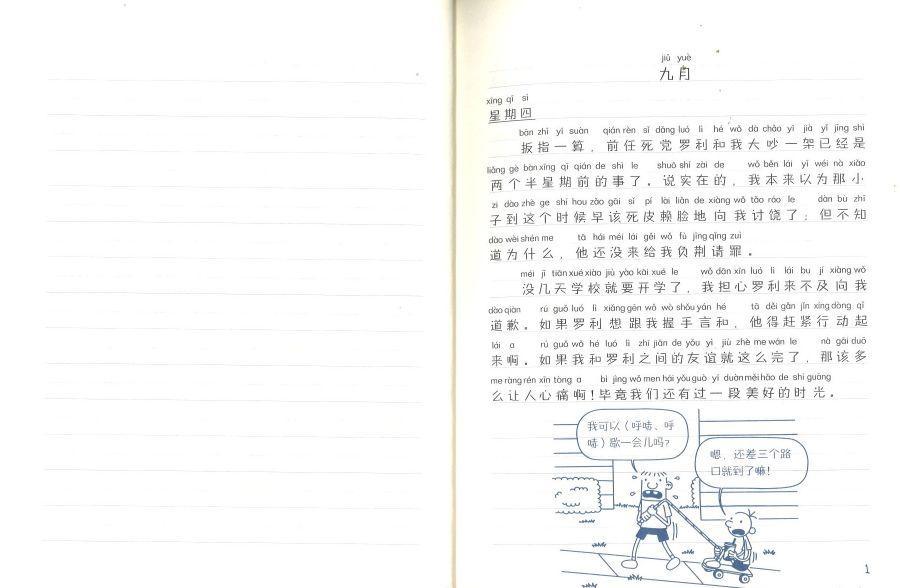 jiǔ yuè
九月
xīng qī sì
星期四
bān zhǐ yī suàn qián rèn sǐ dǎng luó lì hé wǒ dà chǎo yī jià yǐ jīng shì
扳指一算，前任死党罗利和我大吵一架已经是
liǎng gè bàn xīng qī qián de shì le shuō shí zài de wǒ běn lái yǐ wéi nà xiǎo
两个半星期前的事了。说实在的，我本来以为那小
zi dào zhè ge shí hou zǎo gāi sǐ pí lài liǎn de xiàng wǒ tǎo ráo le dàn bù zhī
子到这个时候早该死皮赖脸地向我讨饶了；但不知
dào wèi shén me tā hái méi lái gěi wǒ fù jīng qǐng zuì
道为什么，他还没来给我负荆请罪。
méi jǐ tiān xué xiào jiù yào kāi xué le wǒ dān xīn luó lì lái bu jí xiàng wǒ
没几天学校就要开学了，我担心罗利来不及向我
dào qiàn rú guǒ luó lì xiǎng gēn wǒ wò shǒu yán hé tā děi gǎn jǐn xíng dòng qǐ
道歉。如果罗利想跟我握手言和，他得赶紧行动起
lái a rú guǒ wǒ hé luó lì zhī jiān de yǒu yì jiù zhè me wán le nà gāi duō
来啊。如果我和罗利之间的友谊就这么完了，那该多
me ràng rén xīn tòng a bì jìng wǒ men hái yǒu guò yí duàn měi hǎo de shí guāng
么让人心痛啊！毕竟我们还有过一段美好的时光。
我可以（呼哧、呼
哧）歇一会儿吗？
嗯，还差三个路
口就到了嘛！
1